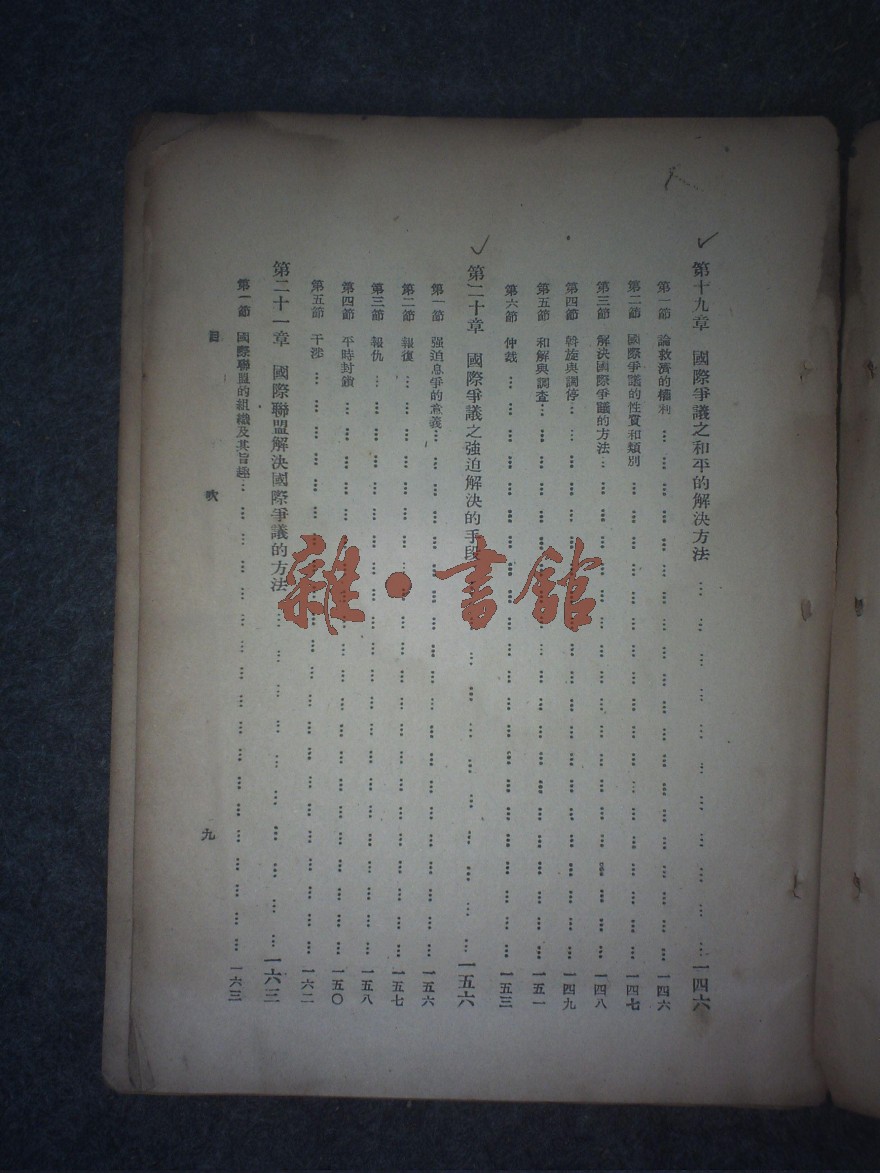 第十九章 國際爭議之和平的解決方法 … 一四六
第一節 論救濟的權利 … 一四六
第二節 國際爭議的性質和類別 … 一四七
第三節 解決國際爭議的方法 … 一四八
第四節 斡旋與調停 … 一四九
第五節 和解與調查 … 一五一
第六節 仲裁 … 一五三
第二十章 國際爭議之強迫解決的手段 … 一五六
第一節 强迫息爭的意義 … 一五六
第二節 報復 … 一五七
第三節 報仇 … 一五八
第四節 平時封鎖 … 一五〇
第五節 干涉 … 一六二
第二十一章 國際聯盟解決國際爭議的方法 … 一六三
第一節 國際聯盟的組織及其旨趣 … 一六三
目 次 九
雜·書館